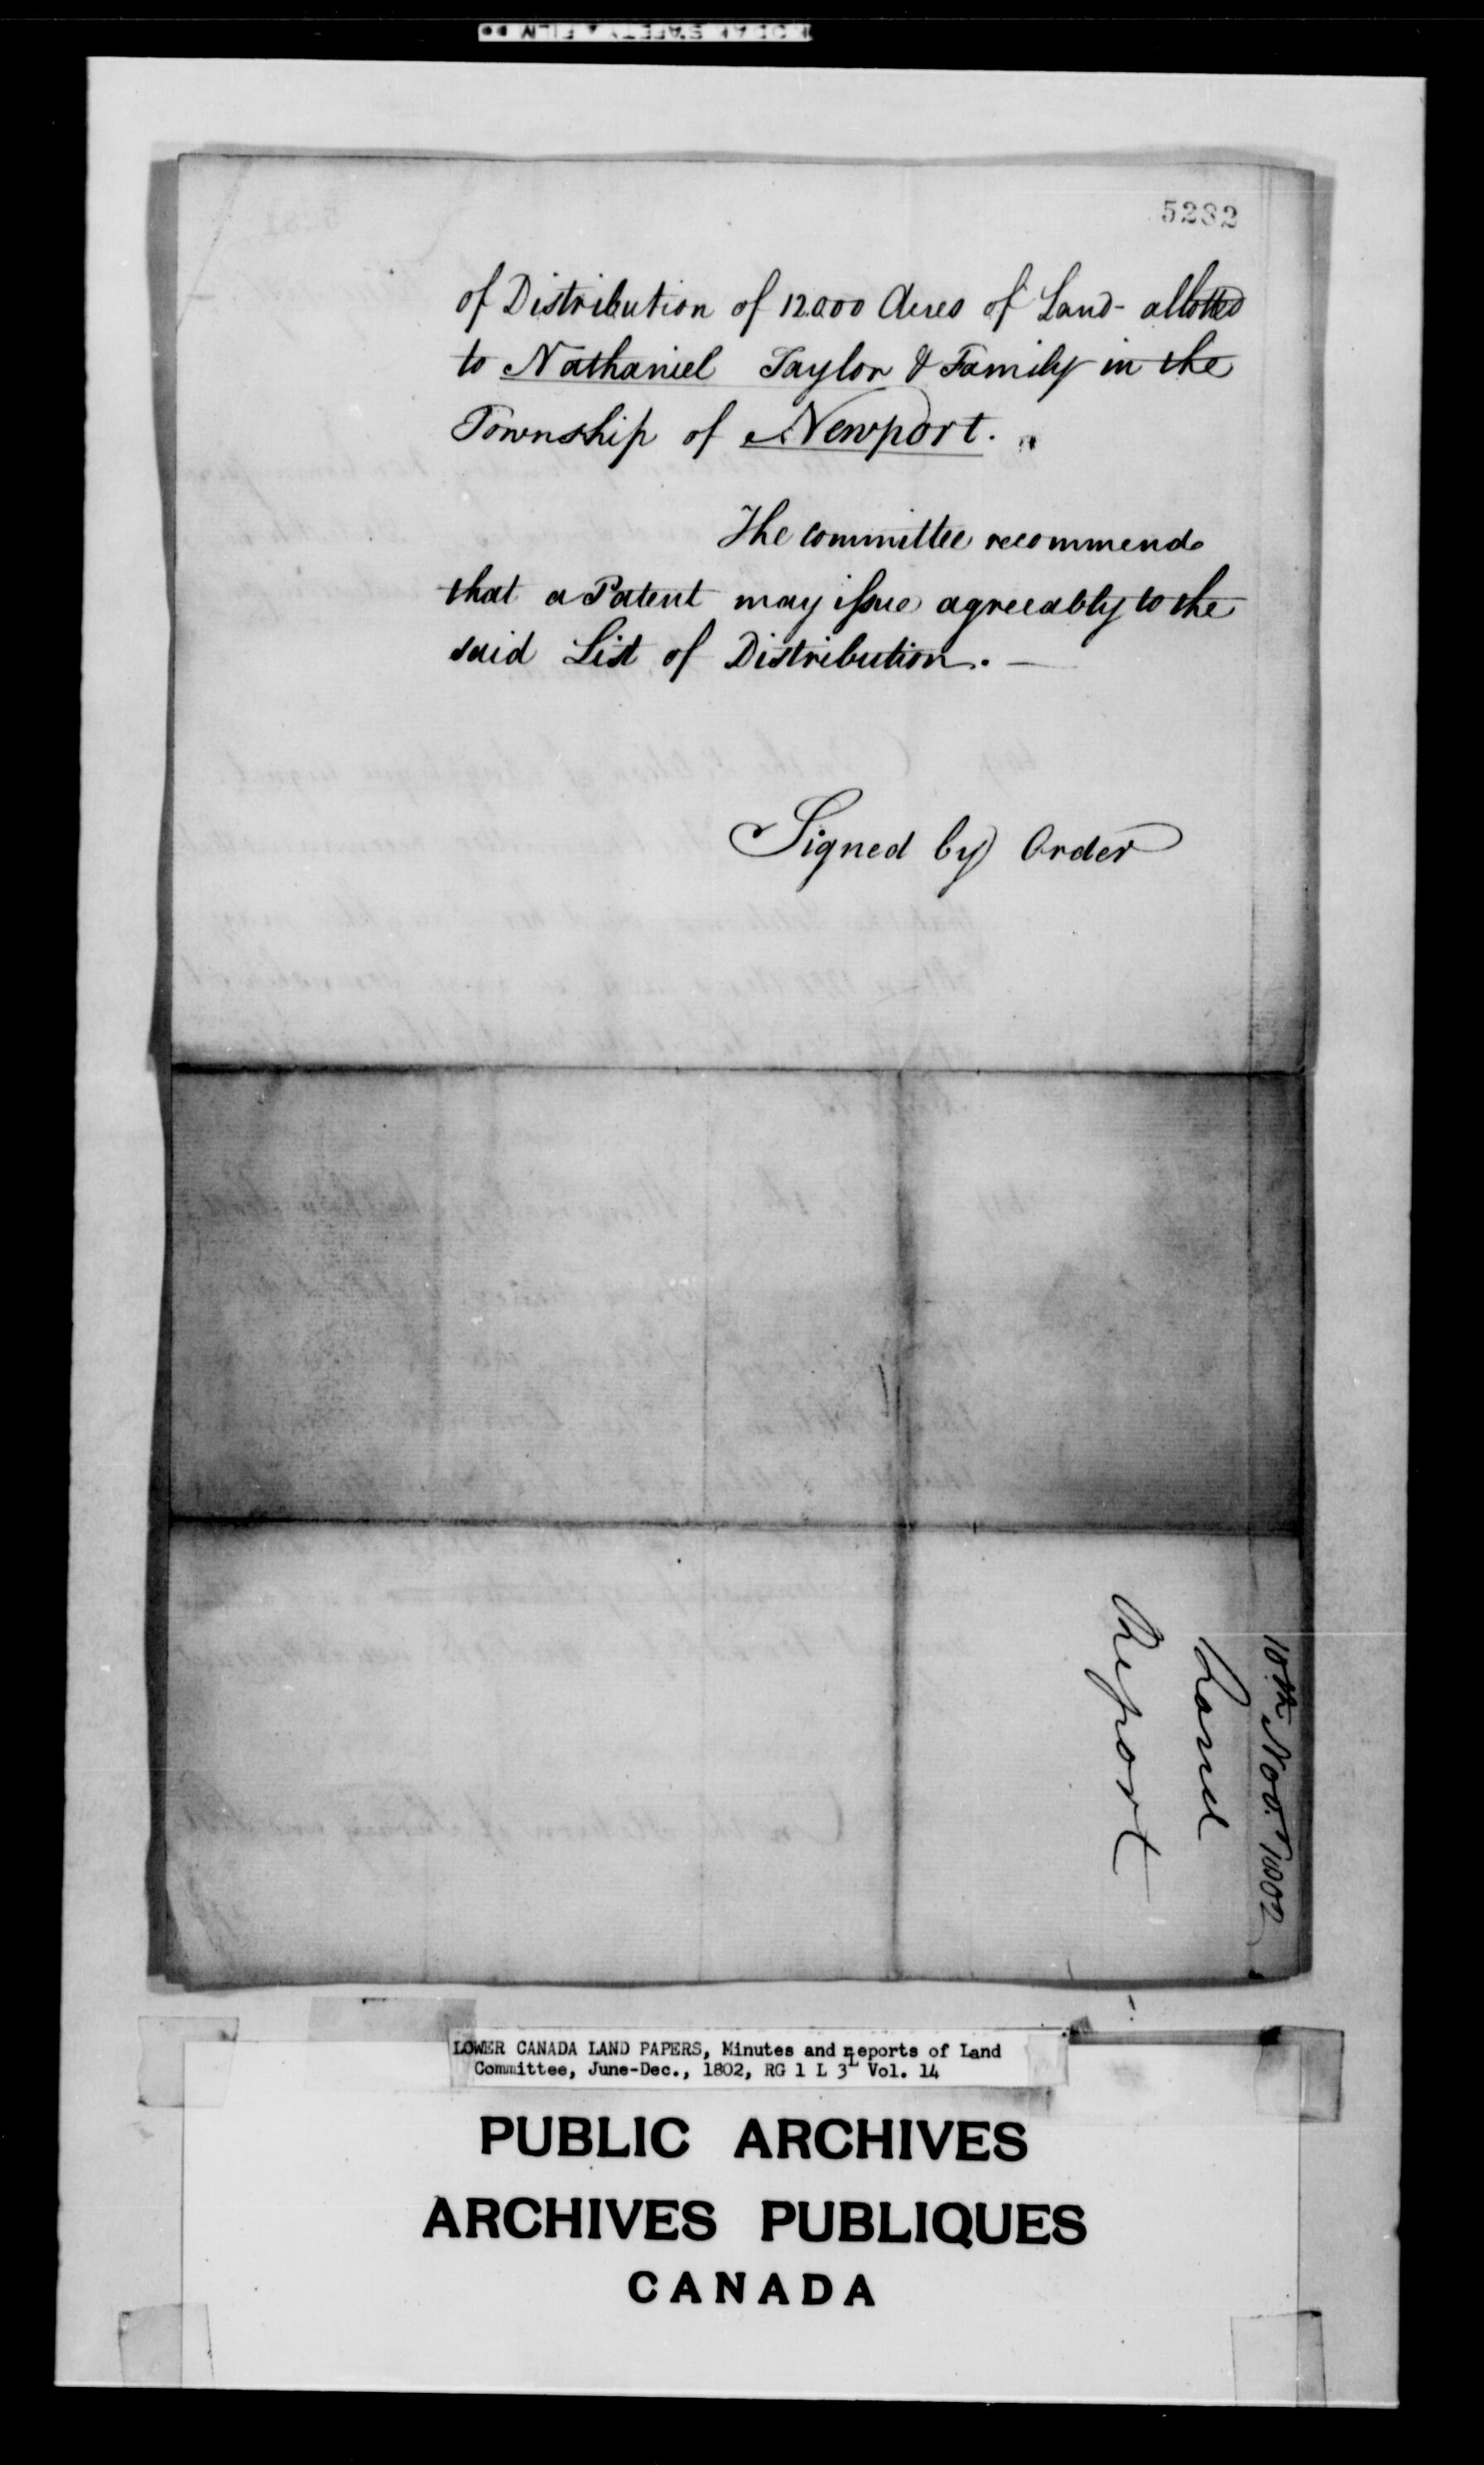 5282
of Distribution of 12000 Acres of Land - allotted
to Nathaniel Taylor & Family in the
Township of Newport.
The Committee recommend
that a Patent may issue agreeably to the
said List of Distribution. —
Signed by Order
10th Novr. 1802
Land
Report
LOWER CANADA LAND PAPERS, Minutes and Reports of Land
Committee, June-Dec., 1802, RG 1 L 3L Vol. 14
PUBLIC ARCHIVES
ARCHIVES PUBLIQUES
CANADA